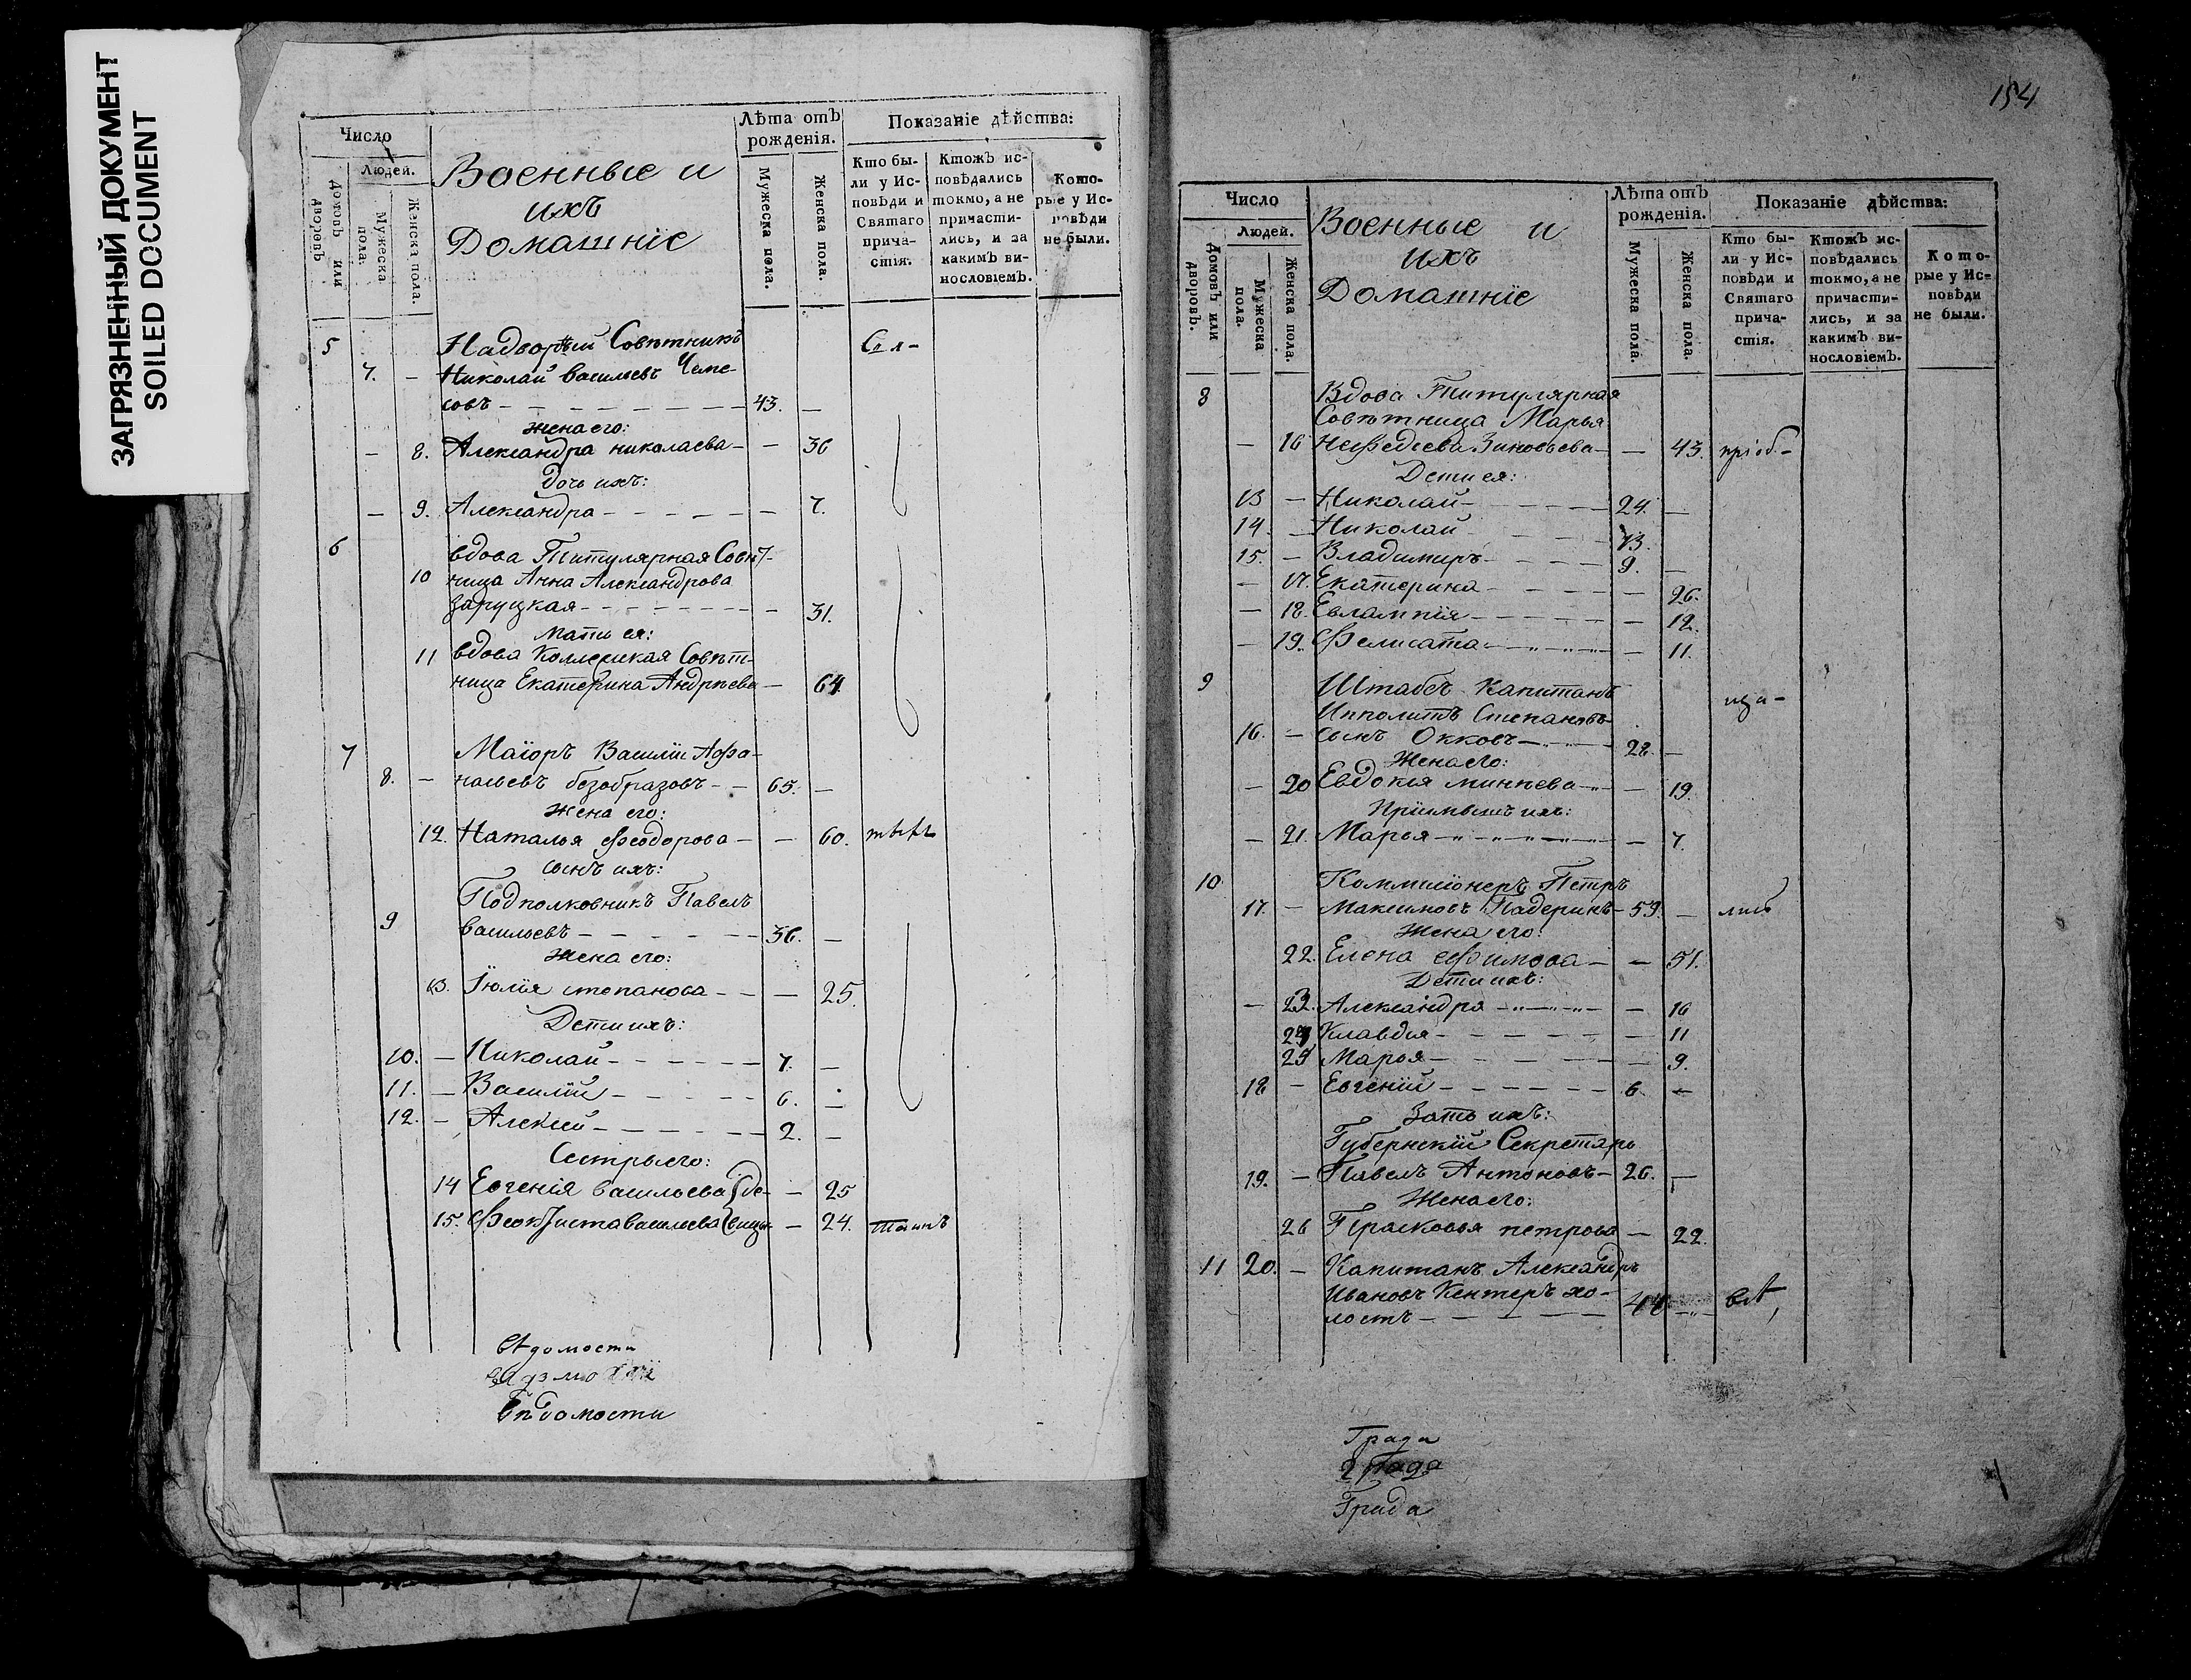 ЗАГРЯЗНЕННЫЙ ДОКУМЕНТ
SOILED DOCUMENT
Число
Людей.
Домовъ или дворовъ
Мужеска пола.
Женска пола.
Военные и
ихъ
Домашнїе
Лѣта отъ
рожденія.
Мужеска пола.
Женска пола.
Показаніе дѣйства:
Кто бы-
ли у Ис-
повѣди и
Святаго
прича-
стія.
Ктожъ ис-
повѣдались
токмо, а не
причасти-
лись, и за
какимъ ви-
нословіемъ.
Кото-
рые у Ис-
повѣди
не были.
5 Надворный Совѣтникъ
7. — Николай Васильевъ
совъ — 43. —
жена его:
— 8. Александра николаева — — 36
дочь ихъ:
— 9. Александра — — 7.
6 вдова Титулярная Совѣт-
10 ница Анна Александрова
Заруцкая — — 31.
мать ея:
11 вдова Коллежская Совѣт-
ница Екатерина Андрѣева — 64
7 Маіоръ Василій Афа-
8. — насьевъ безобразовъ — 65. —
жена его:
12. Наталья Феодорова — — 60.
сынъ ихъ:
Подполковникъ Павелъ
9 васильевъ — 36. —
жена его:
13. Їюлія степанова — — 25.
Дети ихъ:
10. — Николай — 7. —
11. — Василій — 6. —
12. — Алексей — 2. —
Сестры его:
14 Евгенія васильева де- — 25
15. Феоктиста васильева вицы — 24.
вѣдомости
Вѣдомости
154
Число
Людей.
Домовъ или дворовъ.
Мужеска пола.
Женска пола.
Военные и
ихъ
Домашнїе
Лѣта отъ
рожденія.
Мужеска пола.
Женска пола.
Показаніе дѣйства:
Кто бы-
ли у Ис-
повѣди и
Святаго
прича-
стія.
Ктожъ ис-
повѣдались
токмо, а не
причасти-
лись, и за
какимъ ви-
нословіемъ.
Кото-
рые у Ис-
повѣди
не были.
8 Вдова Титулярная
Совѣтница Марья
— 16 Нефедьева Зиновьева — — 43. пріоб-
Дети ея:
13 — Николай — 24. —
14. — Николай — 13.
15. — Владимиръ — 9. —
— 17. Екатерина — — 26.
— 18. Евлампія — — 12.
— 19. Фелисата — — 11.
9 Штабсъ Капитанъ
Ипполитъ Степановъ
16. — сынъ Окковъ — 28. —
Жена его:
— 20 Евдокія минѣева — — 19.
Пріимышъ ихъ:
— 21. Марья — — 7.
10 Коммисіонеръ Петръ
17. — Максимовъ Падеринъ — 59. —
Жена его:
22. Елена Ефимова — — 51.
Дети ихъ:
— 23. Александра — — 16
24 Клавдія — — 11
25 Марья — — 9.
18 — Евгеній — 6. —
Зять ихъ:
Губернскій Секретарь
19. — Павелъ Антоновъ — 26. —
Жена его:
26 Прасковья петрова — 22.
11 20. — Капитанъ Александръ
Ивановъ Кентеръ хо-
лостъ — 44
Града
Града
Града